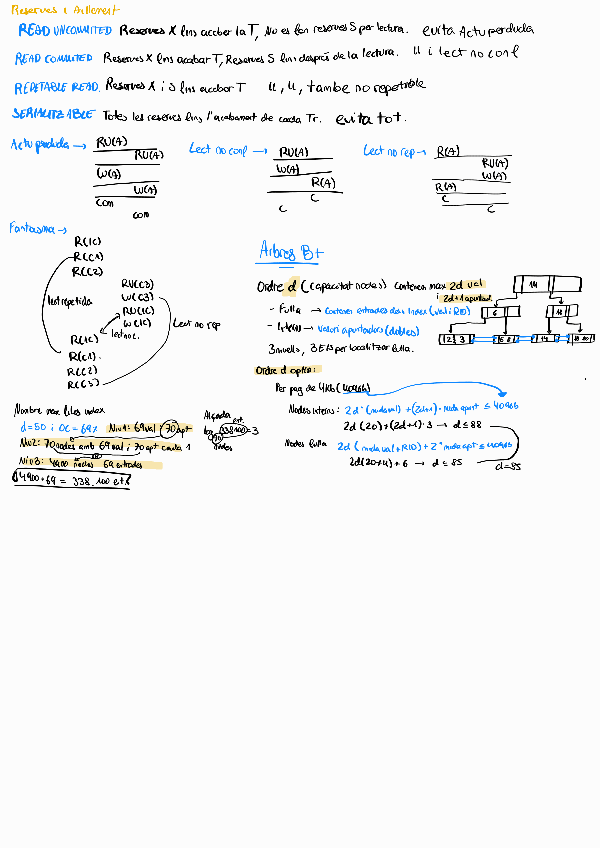 Reserves i Aïllament
READ UNCOMMITED Reserves X fins acabar la T, No es fan reserves S per lectura. evita Actu perduda
READ COMMITED Reserves X fins acabar T, Reserves S fins després de la lectura. " i lect no conf
REPETABLE READ. Reserves X i S fins acabar T ", ", també no repetible
SERIALITZABLE Totes les reserves fins l'acabament de cada Tr. evita tot.
Actu perduda → RU(A)
RU(A)
W(A)
W(A)
com
com
Lect no conf → RU(A)
W(A)
R(A)
C
C
Lect no rep → R(A)
RU(A)
W(A)
R(A)
C
C
Fantasma →
R(IC)
R(C1)
R(C2)
RU(C3)
W(C3)
RU(IC)
W(IC)
R(IC)
R(C1).
R(C2)
R(C3)
lect repetida
lect no c.
Lect no rep
Arbres B+
Ordre d (capacitat nodes) contenen max 2d val
i 2d+1 apuntad.
- Fulla → contenen entrades dels índex (val i RID)
- Intern → valors apuntadors (dobles)
3 nivells, 3 E/S per localitzar fulla.
14
6
18
2 3
Ordre d òptic:
Per pag de 4Kb (4096b)
Nodes interns: 2d · (mida val) + (2d+1) · mida apunt ≤ 4096b
2d(20) + (2d+1) · 3 → d ≤ 88
Nodes fulla 2d (mida val + RID) + 2 * mida apt ≤ 4096b
2d(20+4) + 6 → d ≤ 85
d=85
Nombre max files index
d=50 i OC = 69% Niv1: 69 val i 70 apt
Niv2: 70 nodes amb 69 val i 70 apt cada 1
Niv3: 4900 nodes 69 entrades
4900 · 69 = 338.100 ets
Alçada
ent.
log 338100 = 3
nodes